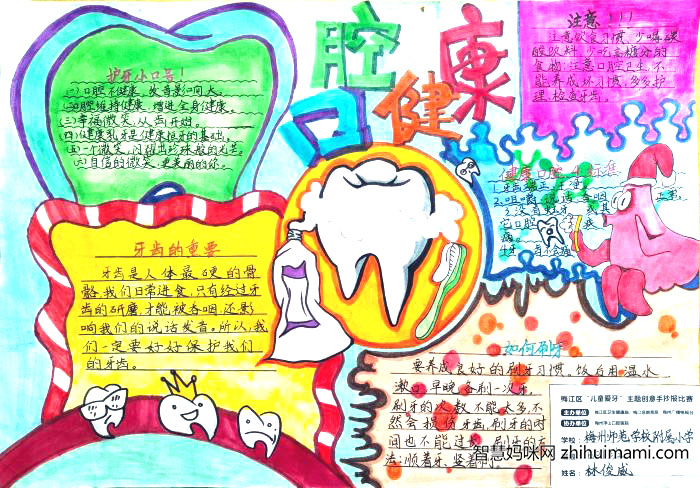 口腔健康
护牙小口号!
(一)口腔不健康,发音影响大。
(二)口腔维持健康,增进全身健康。
(三)幸福微笑,从齿开始。
(四)健康乳牙是健康恒牙的基础。
(五)一个微笑,闪亮出珍珠般的光芒。
(六)自信的微笑,更美丽的你。
注意!!!
注意饮食习惯,少喝碳
酸饮料,少吃高糖分的
食物;注意口腔卫生,不
能养成坏习惯,多多护
理,检查牙齿。
健康口腔 标准
1.牙齿端正,干净
2.咀嚼、说话、吞咽 正常
3.没有蛀牙
牙齿的重要
牙齿是人体最硬的骨
骼,我们日常进食,只有经过牙
齿的研磨,才能被吞咽,还影
响我们的说话发音。所以,我
们一定要好好保护我们
的牙齿。
如何刷牙
要养成良好的刷牙习惯。饭后用温水
漱口,早晚各刷一次牙,
刷牙的次数不能太多,不
然会损伤牙齿,刷牙的时
间也不能过长,刷牙的方
法:顺着牙、竖着刷。
梅江区“儿童爱牙”主题创意手抄报比赛
主办单位
协办单位
学校:梅州师范学校附属小学
姓名:林俊威
智慧妈咪网 zhihuimami.com